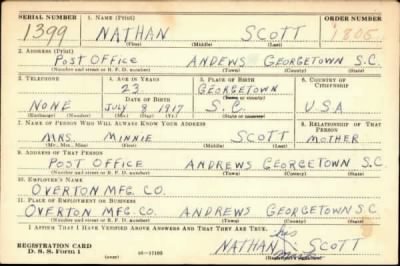 SERIAL NUMBER 1. NAME (Print) ORDER NUMBER
1399 NATHAN SCOTT 1805
(First) (Middle) (Last)
2. ADDRESS (Print)
POST OFFICE ANDEWS GEORGETOWN S.C.
(Number and street or R. F. D. number) (Town) (County) (State)
3. TELEPHONE 4. AGE IN YEARS 5. PLACE OF BIRTH 6. COUNTRY OF CITIZENSHIP
23 GEORGETOWN
DATE OF BIRTH (Town or county)
NONE JULY 8 1917 S.C. U.S.A
(Exchange) (Number) (Mo.) (Day) (Yr.) (State or country)
7. NAME OF PERSON WHO WILL ALWAYS KNOW YOUR ADDRESS 8. RELATIONSHIP OF THAT PERSON
MRS. MINNIE SCOTT MOTHER
(Mr., Mrs., Miss) (First) (Middle) (Last)
9. ADDRESS OF THAT PERSON
POST OFFICE ANDREWS GEORGETOWN S.C.
(Number and street or R. F. D. number) (Town) (County) (State)
10. EMPLOYER'S NAME
OVERTON MFG. CO.
11. PLACE OF EMPLOYMENT OR BUSINESS
OVERTON MFG. CO. ANDREWS GEORGETOWN S.C.
(Number and street or R. F. D. number) (Town) (County) (State)
I AFFIRM THAT I HAVE VERIFIED ABOVE ANSWERS AND THAT THEY ARE TRUE.
his
REGISTRATION CARD NATHAN X SCOTT
D. S. S. Form 1 (over)